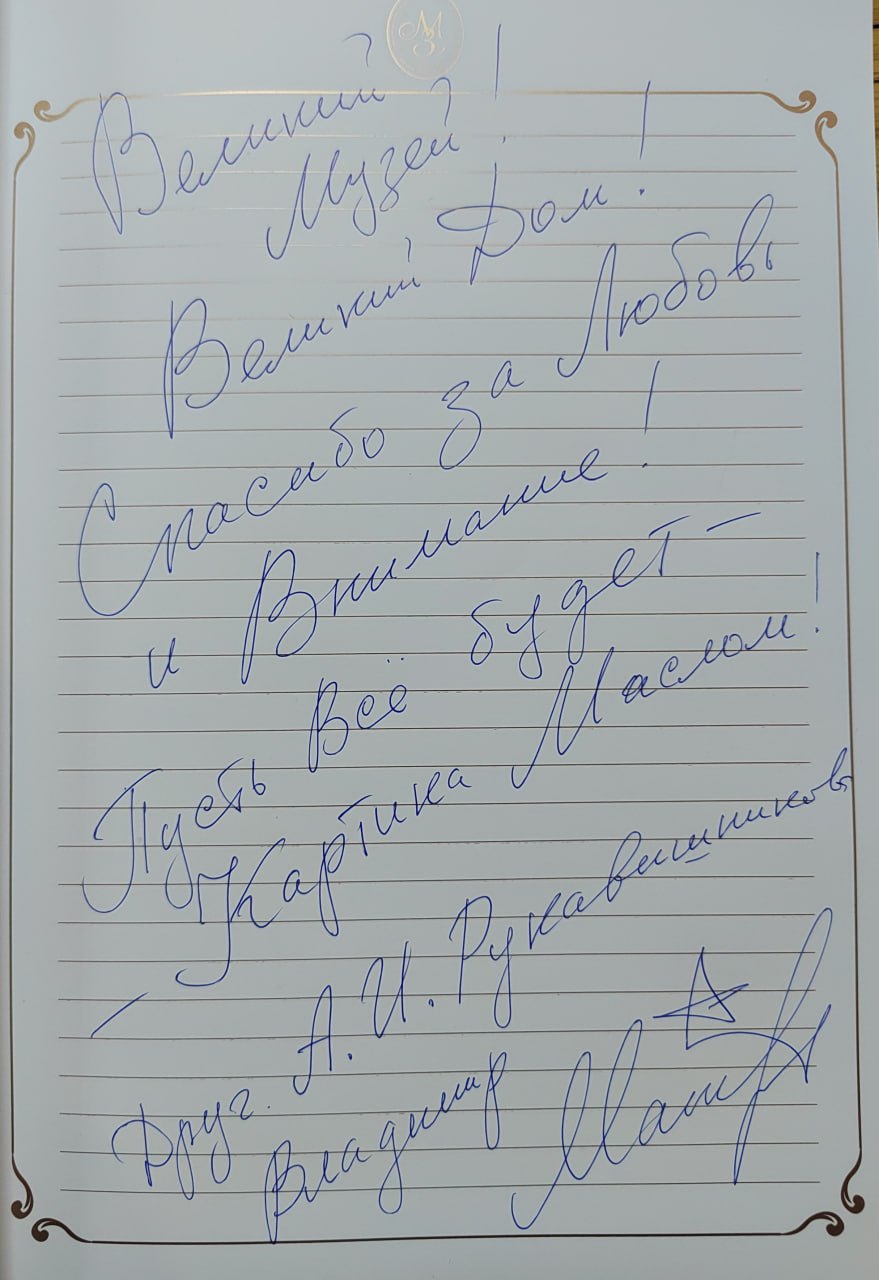 МЗ
Великий
Музей!
Великий Дом!
Спасибо за Любовь
и Внимание!
Пусть Всё будет —
— Картина Маслом!
Друг. А. И. Рукавишников
Владимир